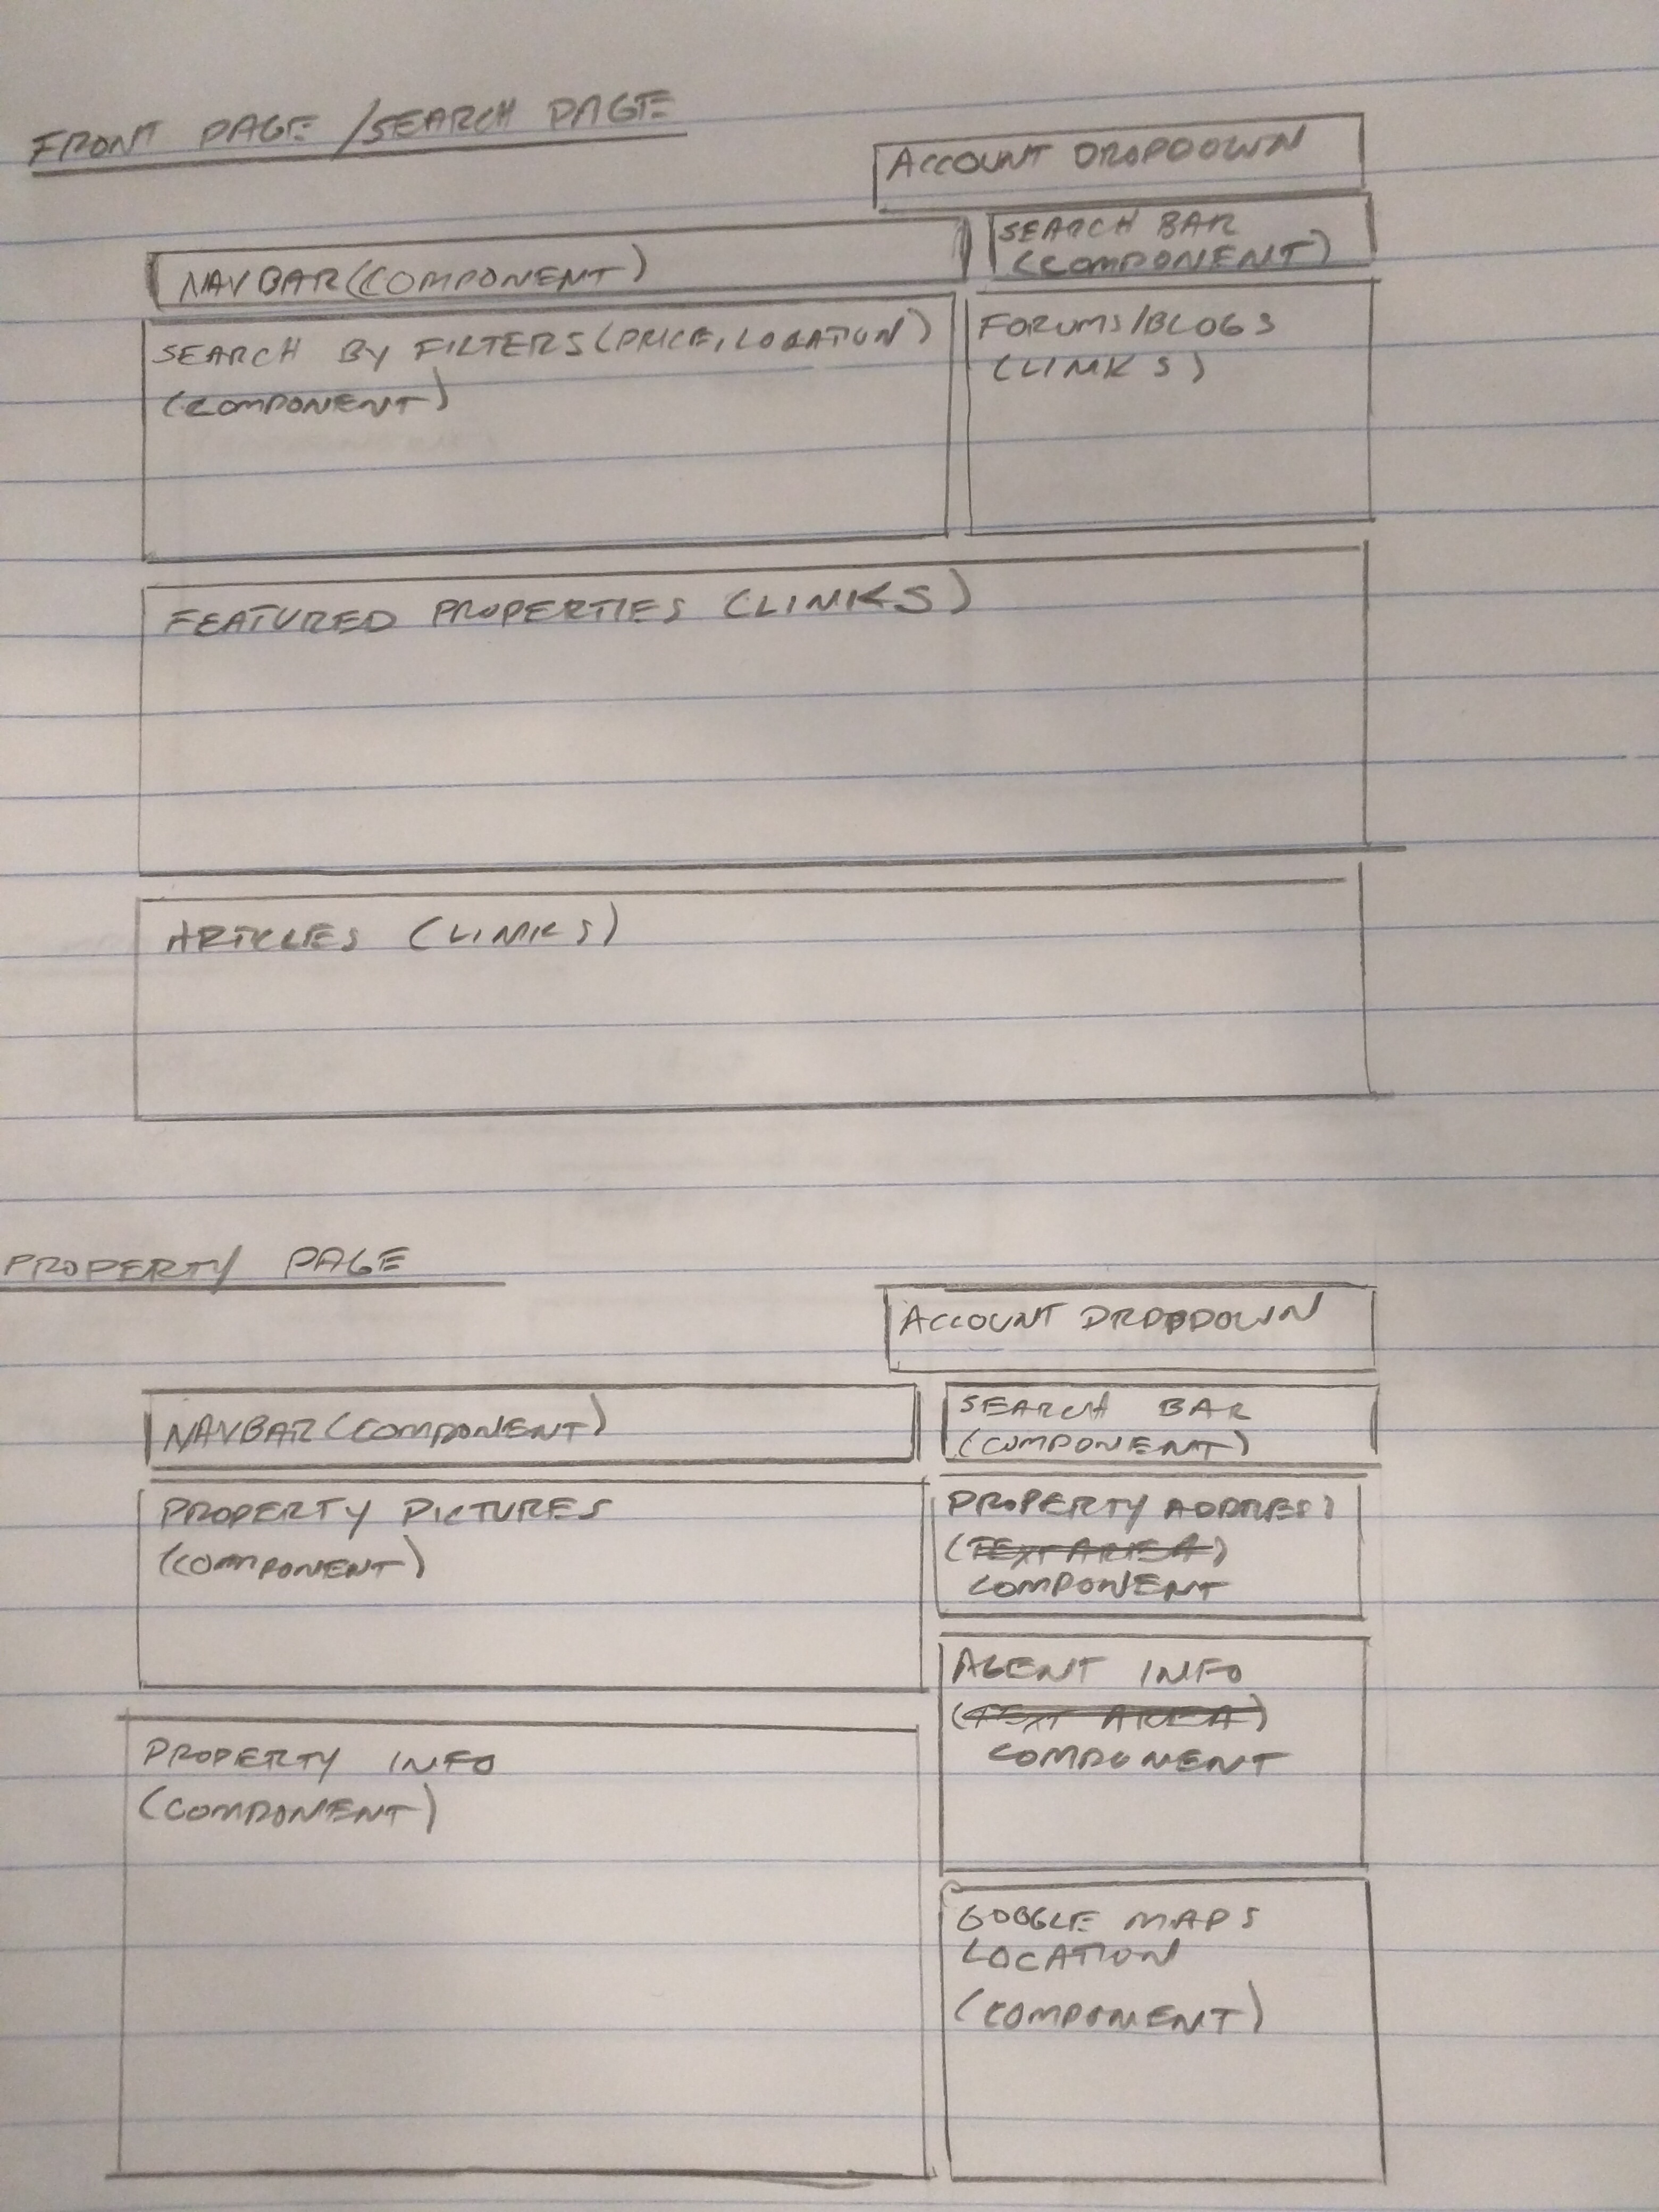 FRONT PAGE / SEARCH PAGE
ACCOUNT DROPDOWN
NAVBAR (COMPONENT)
SEARCH BAR
(COMPONENT)
SEARCH BY FILTERS (PRICE, LOCATION)
(COMPONENT)
FORUMS/BLOGS
(LINKS)
FEATURED PROPERTIES (LINKS)
ARTICLES (LINKS)
PROPERTY PAGE
ACCOUNT DROPDOWN
NAVBAR (COMPONENT)
SEARCH BAR
(COMPONENT)
PROPERTY PICTURES
(COMPONENT)
PROPERTY ADDRESS
(TEXT AREA)
COMPONENT
AGENT INFO
(TEXT AREA)
COMPONENT
PROPERTY INFO
(COMPONENT)
GOOGLE MAPS
LOCATION
(COMPONENT)